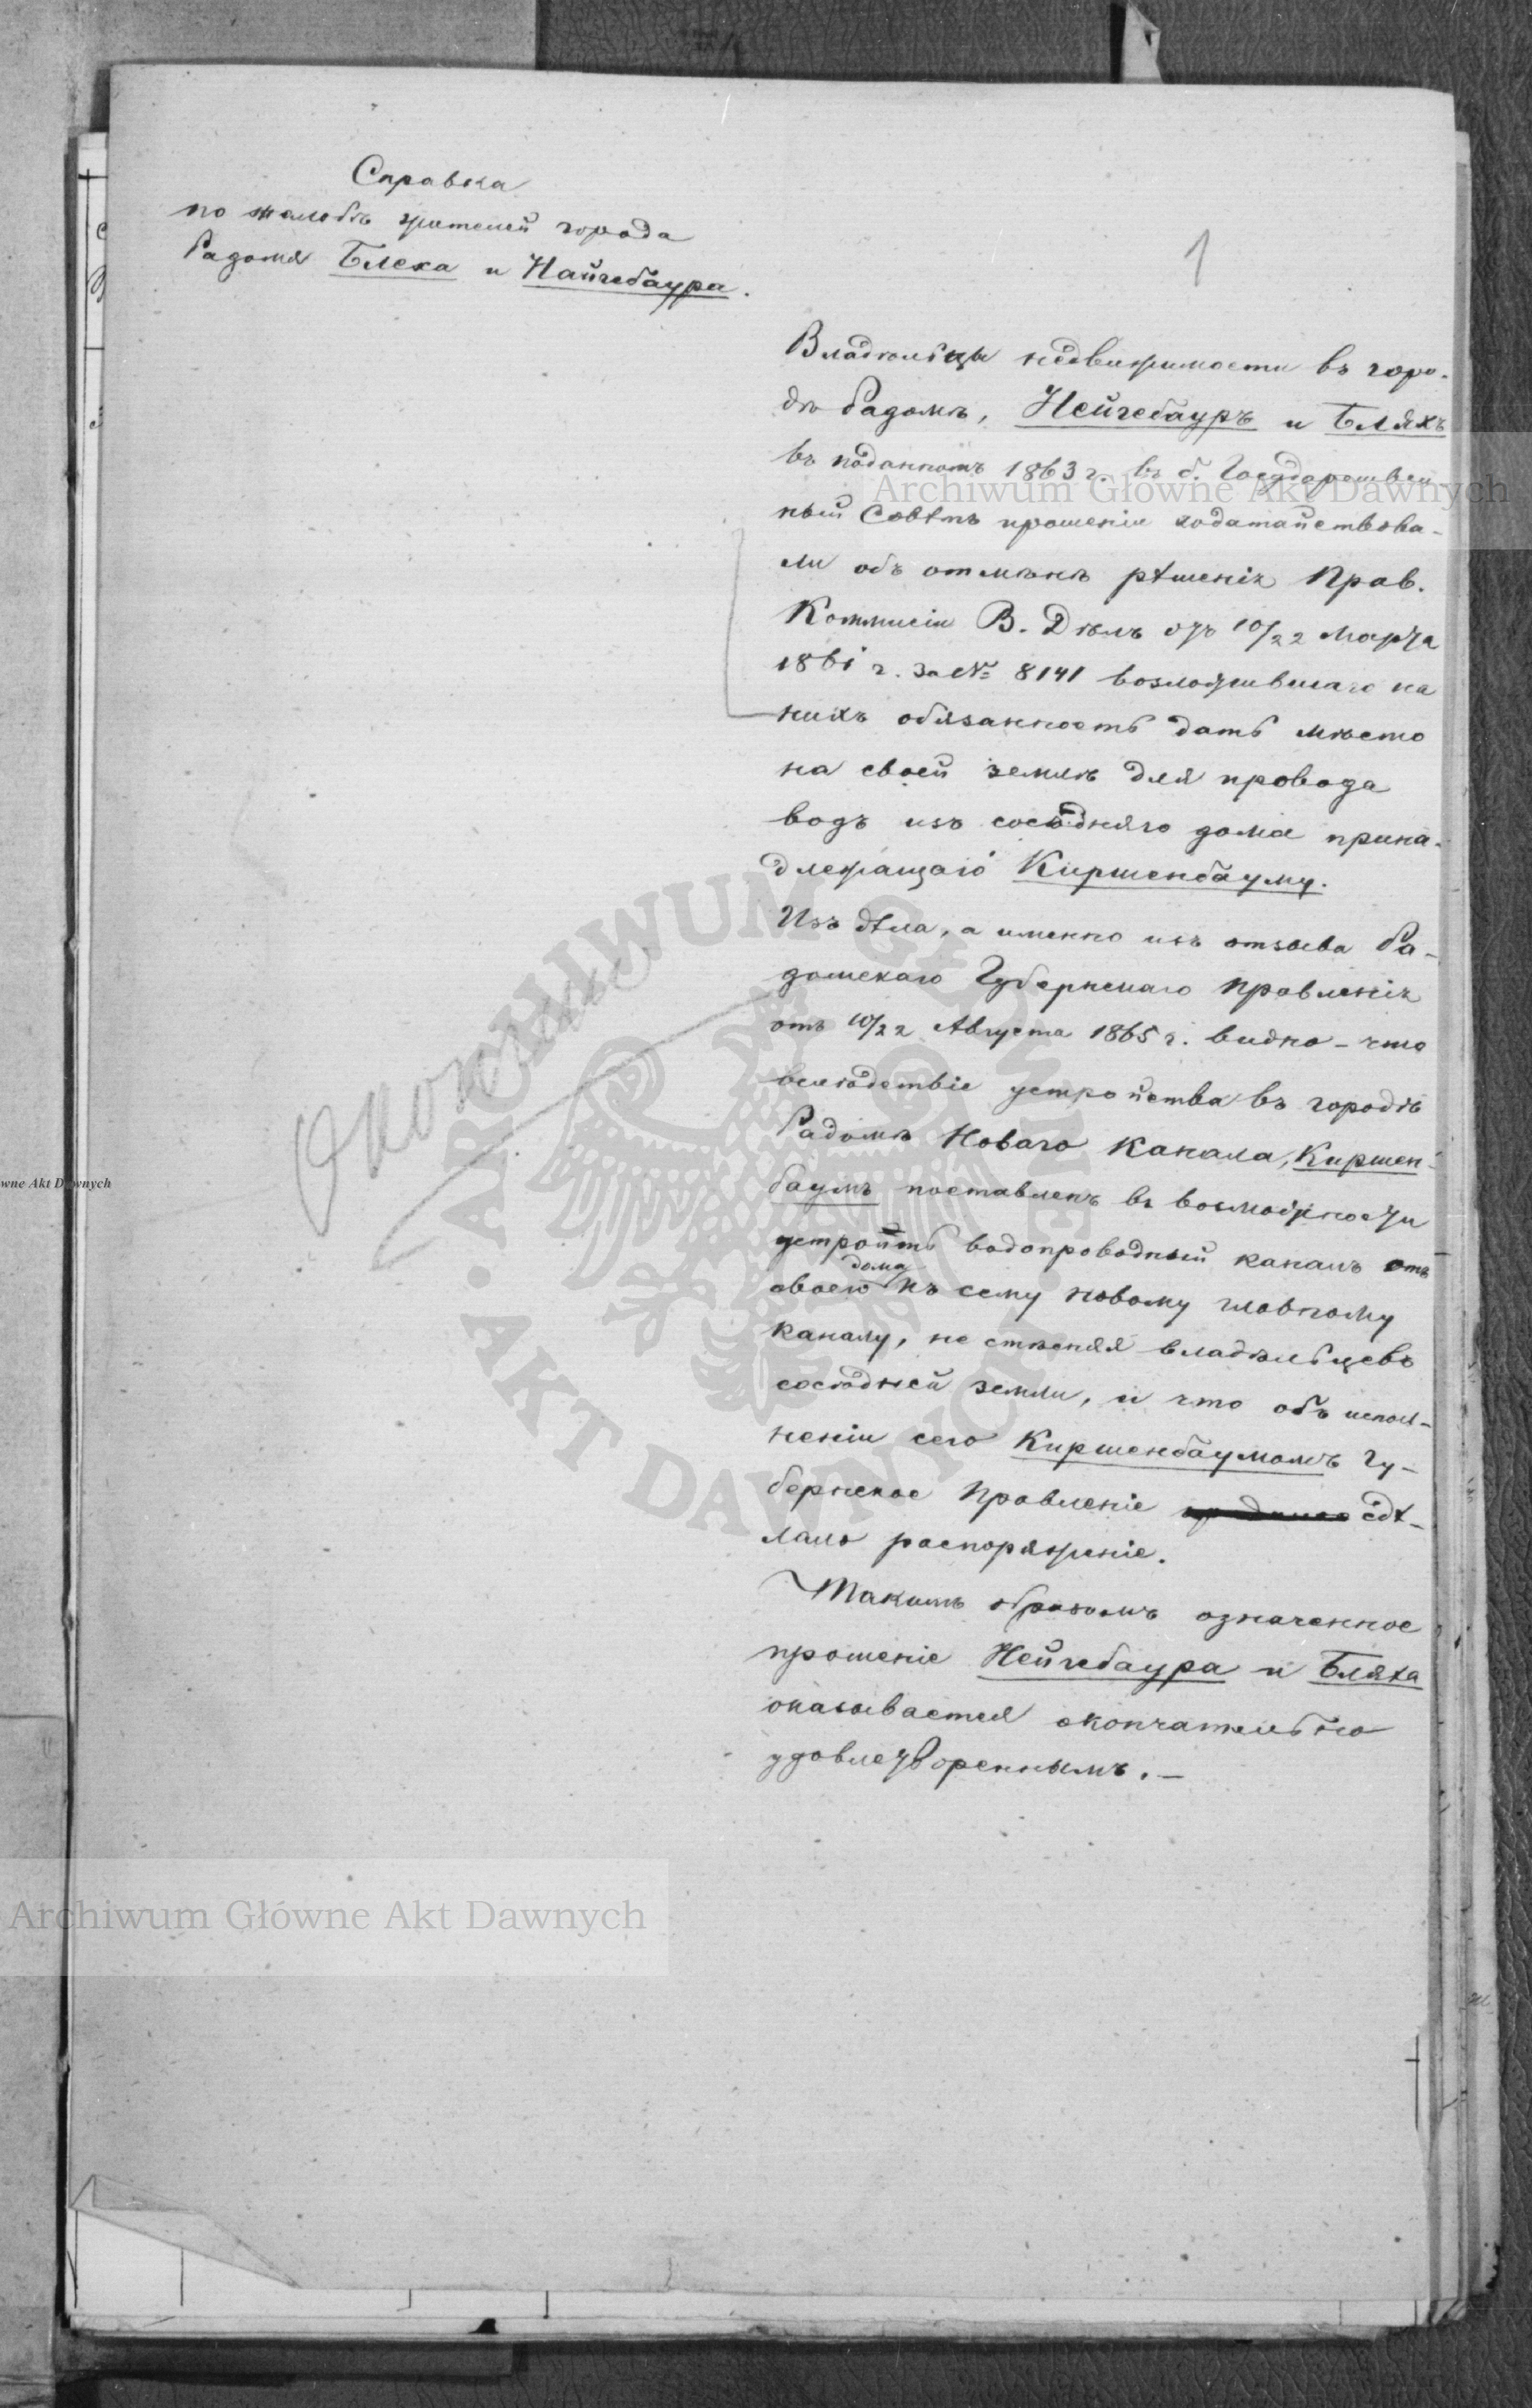 Справка
по жалобѣ жителей города
Радома Блеха и Найгебаура.
1
Владѣльцы недвижимости въ горо-
дѣ Радомѣ, Нейгебауръ и Бляхъ
въ поданномъ 1863 г. въ б. Государствен-
ный Совѣтъ прошеніи ходатайствова-
ли объ отмѣнѣ рѣшенія Прав.
Коммисіи В. Дѣлъ отъ 10/22 Марта
1861 г. за № 8141 возложившаго на
нихъ обязанность дать мѣсто
на своей землѣ для провода
водъ изъ сосѣдняго дома прина-
длежащаго Киршенбауму.
Изъ дѣла, а именно изъ отзыва Ра-
домскаго Губернскаго Правленія
отъ 10/22 Августа 1865 г. видно - что
вслѣдствіе устройства въ городѣ
Радомѣ Новаго Канала, Киршен-
баумъ поставленъ въ возможности
устроить водопроводный каналъ отъ
своего дома къ сему новому главному
каналу, не стѣсняя владѣльцевъ
сосѣдней земли, и что объ испол-
неніи сего Киршенбаумомъ Гу-
бернское Правленіе сдѣ-
лало распоряженіе.
Такимъ образомъ означенное
прошеніе Нейгебаура и Бляха
оказывается окончательно
удовлетвореннымъ. —
Archiwum Główne Akt Dawnych
wne Akt Dawnych
ARCHIWUM GŁÓWNE
AKT DAWNYCH
Archiwum Główne Akt Dawnych